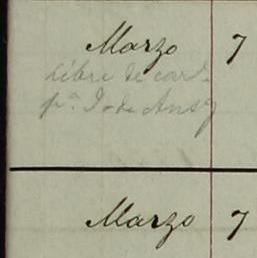 Marzo 7
libre de card.
pª I. de Ansg
Marzo 7